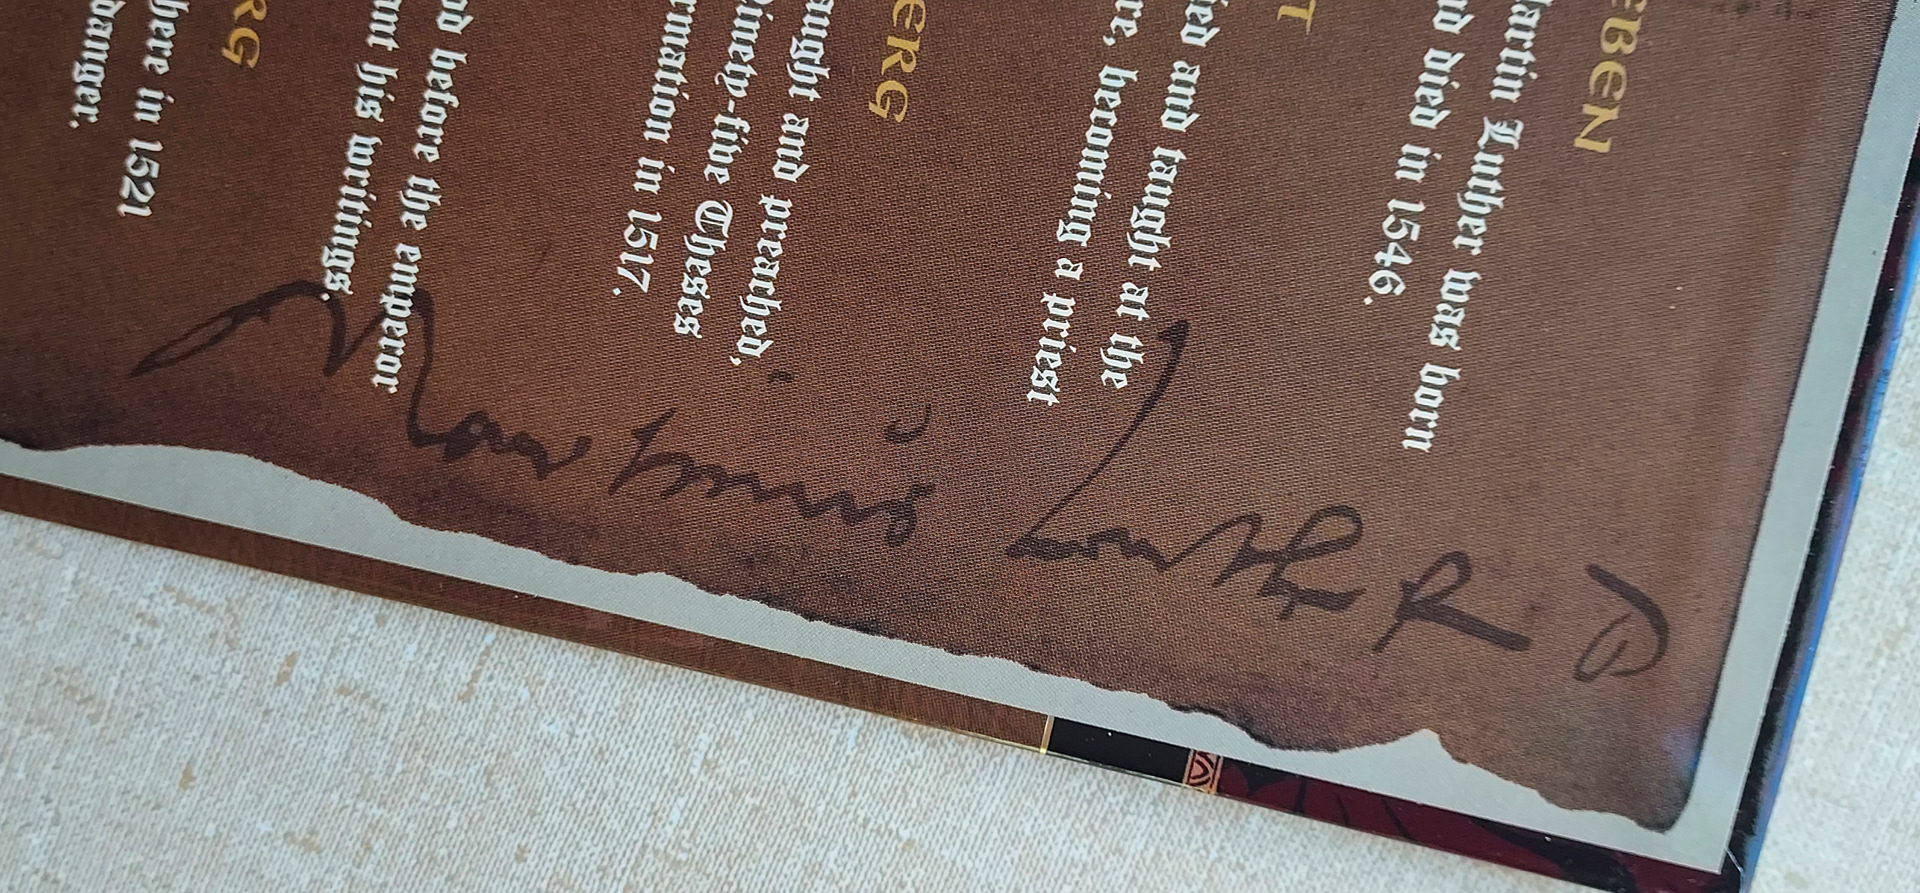 EBEN
Martin Luther was born
nd died in 1546.
T
ied and taught at the
re, becoming a priest
ERG
aught and preached,
Ninety-five Theses
rmation in 1517.
od before the emperor
ant his writings.
RG
here in 1521
danger.
Martinus Luther D